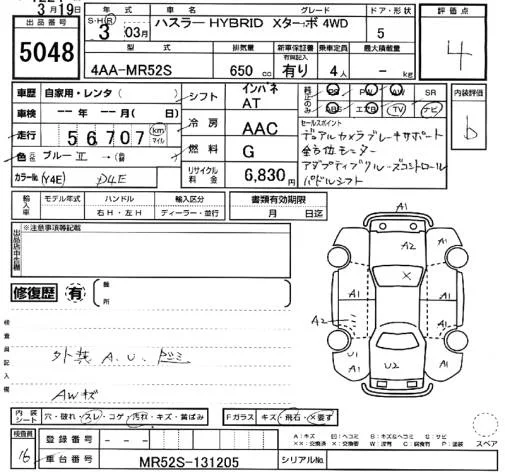 3月19日
出品番号
5048
年式
S・H・R
3 03月
車名
グレード
ハスラー HYBRID Xターボ 4WD
ドア・形状
5
評価点
4
型式
4AA-MR52S
排気量
650 cc
新車保証書
有団記入
有り
乗車定員
4人
最大積載量
- kg
車歴 自家用・レンタ( )
車検 -- 年 -- 月( 日)
走行 56707 km マイル
色 元色 ブルーⅡ →
カラーNo. (Y4E) P4E
シフト インパネ AT
冷房 AAC
燃料 G
リサイクル料金 6,830円
PS PW AW SR
ABS エアB TV ナビ
セールスポイント
デュアルカメラブレーキサポート
全方位モニター
アダプティブクルーズコントロール
パドルシフト
内装評価
b
輸入車
モデル年式
ハンドル
右H・左H
輸入区分
ディーラー・並行
書類有効期限
月 日迄
出品店申告欄
※注意事項等記載
修復歴 有
箇所
検査員記入欄
外装 A.U.
AWキズ
A1
A2 A1
A1 X
A1 A1
A2
U1 A1
U2
内装シート 穴・破れ・スレ・コゲ・汚れ・キズ・黄ばみ
Fガラス キズ・飛石・X要す
A：キズ
XX：交換済 X：交換要 W：波有 C：腐食有 P：塗装
スペア
検査員
16
登録番号 - -
車台番号 MR52S-131205
シリアルNo.